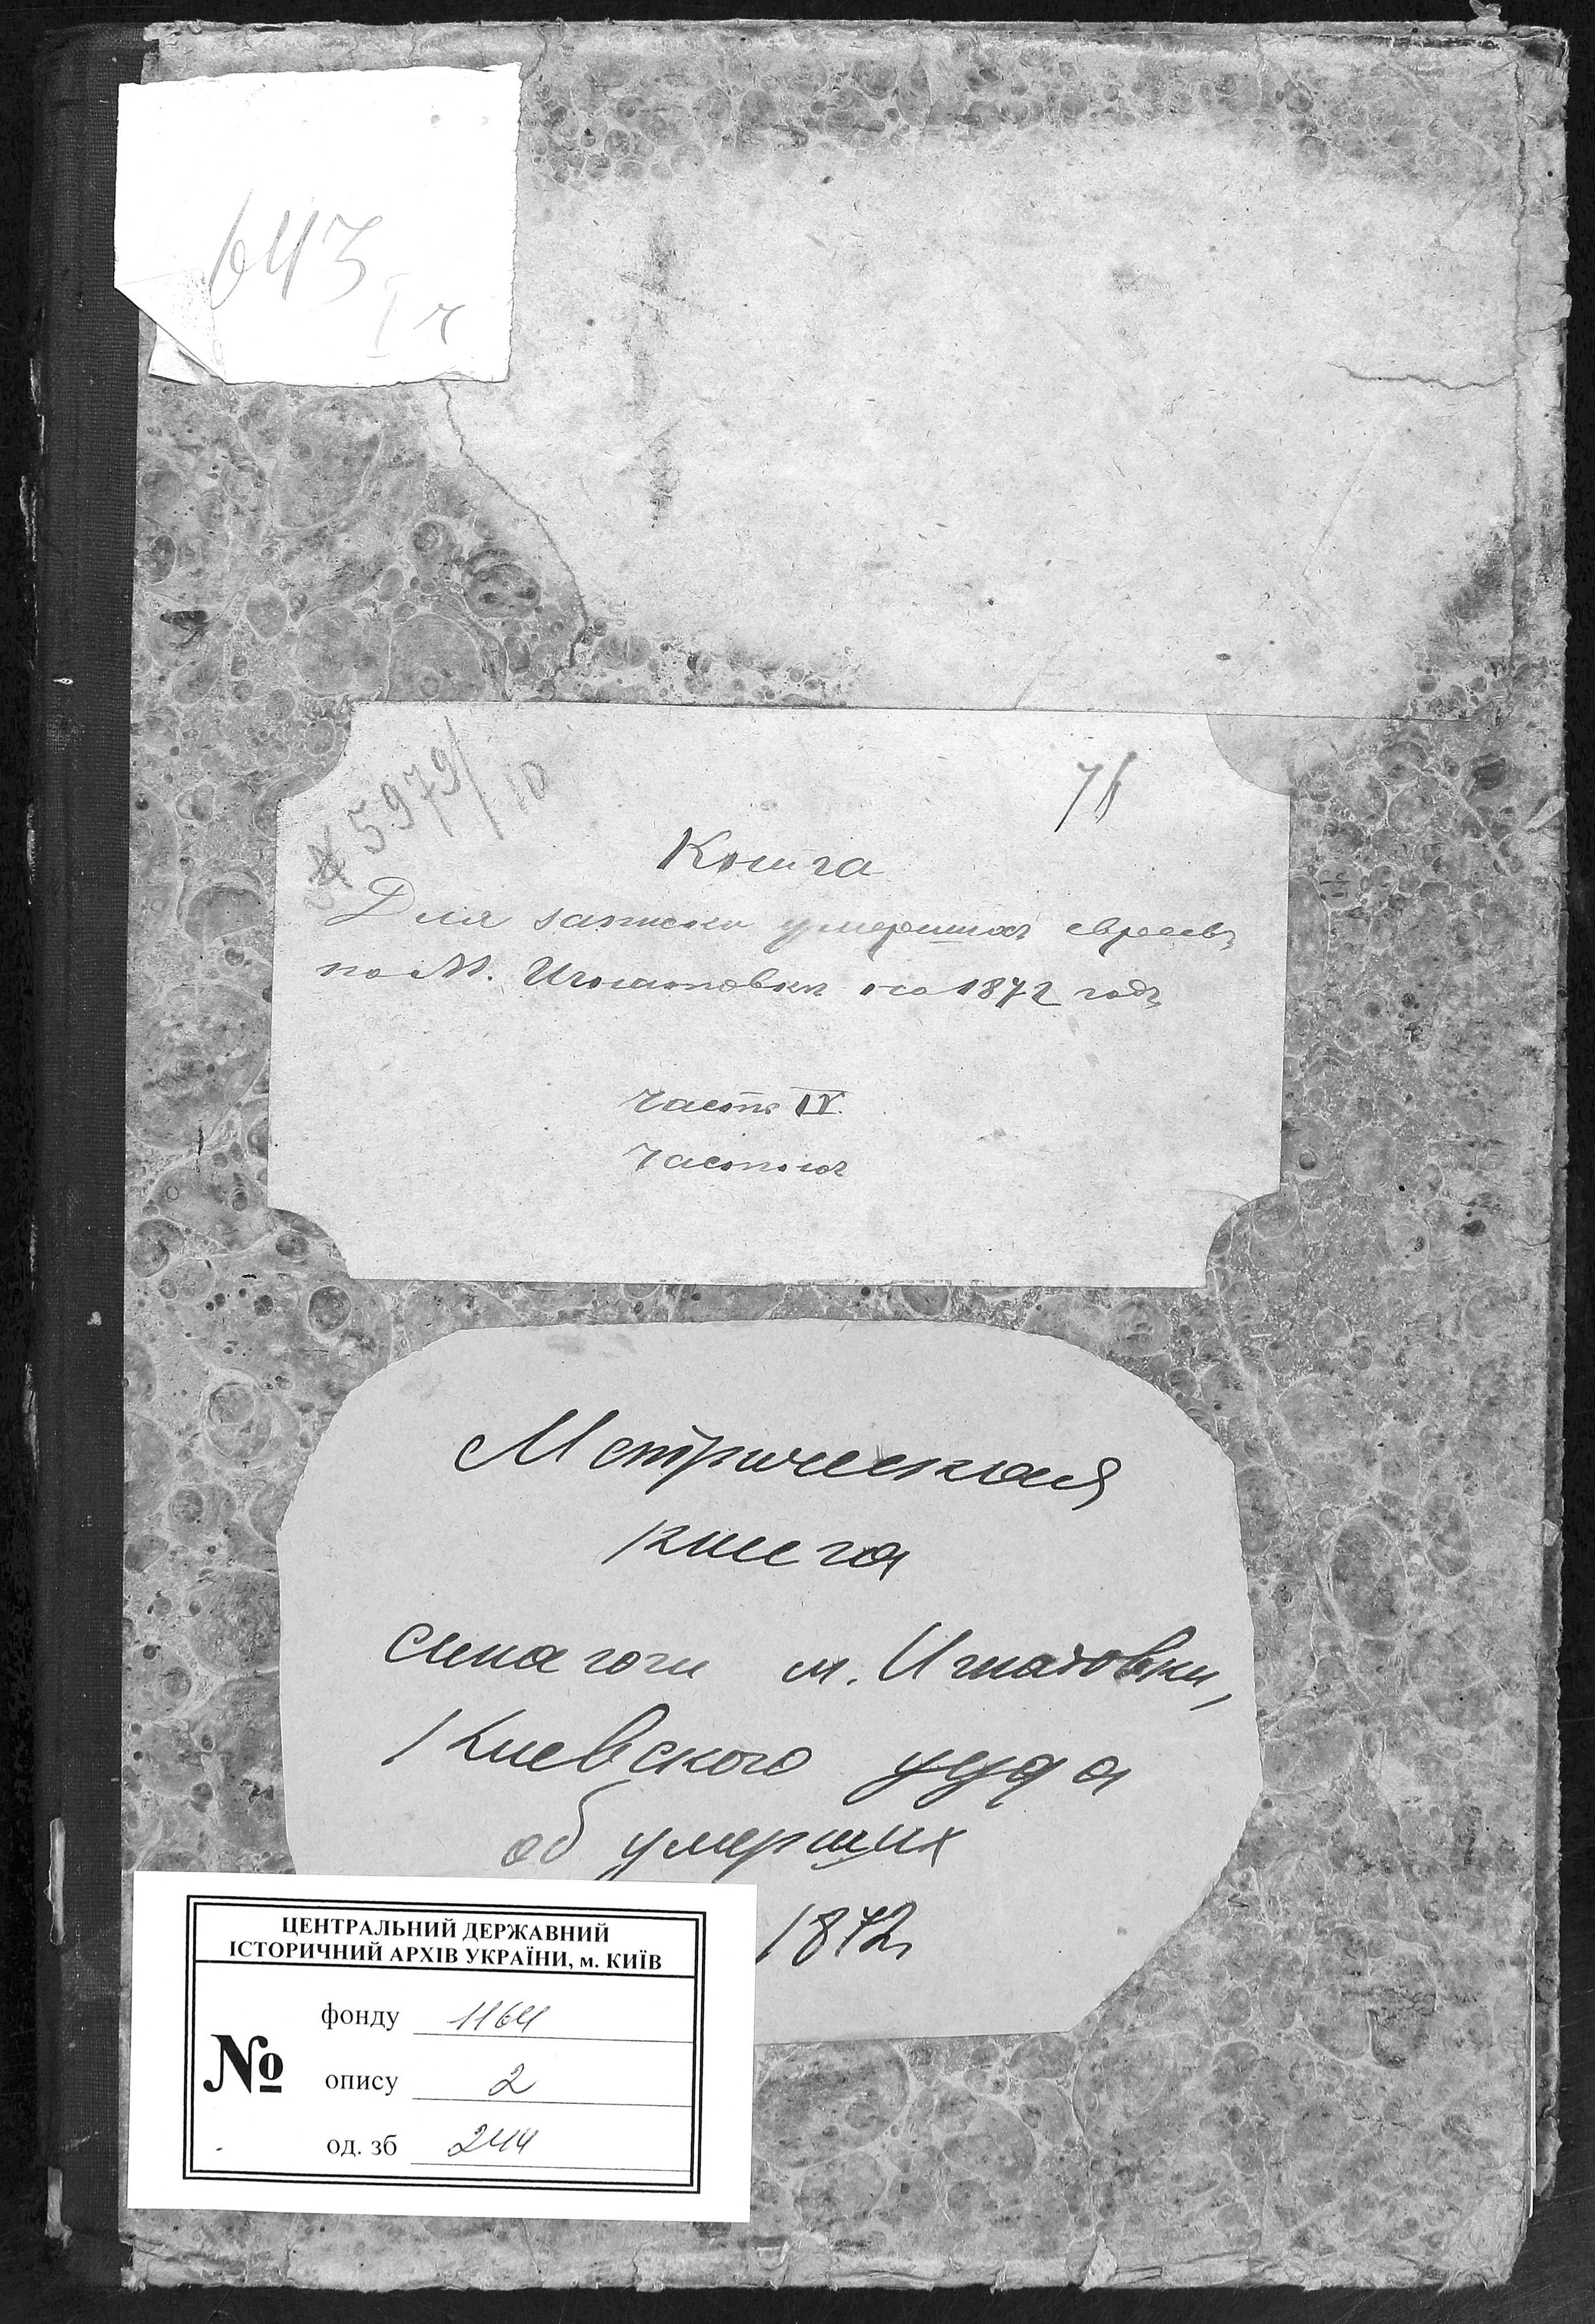 643
I ч
№ 5979/10
76
Книга
Для записки умершихъ евреевъ
по М. Игнатовки на 1872 годъ
Часть IV.
Метрическая
книга
синагоги м. Игнатовки,
Киевского уезда
об умерших
1872
ЦЕНТРАЛЬНИЙ ДЕРЖАВНИЙ
ІСТОРИЧНИЙ АРХІВ УКРАЇНИ, м. КИЇВ
фонду 1164
№ опису 2
од. зб 244